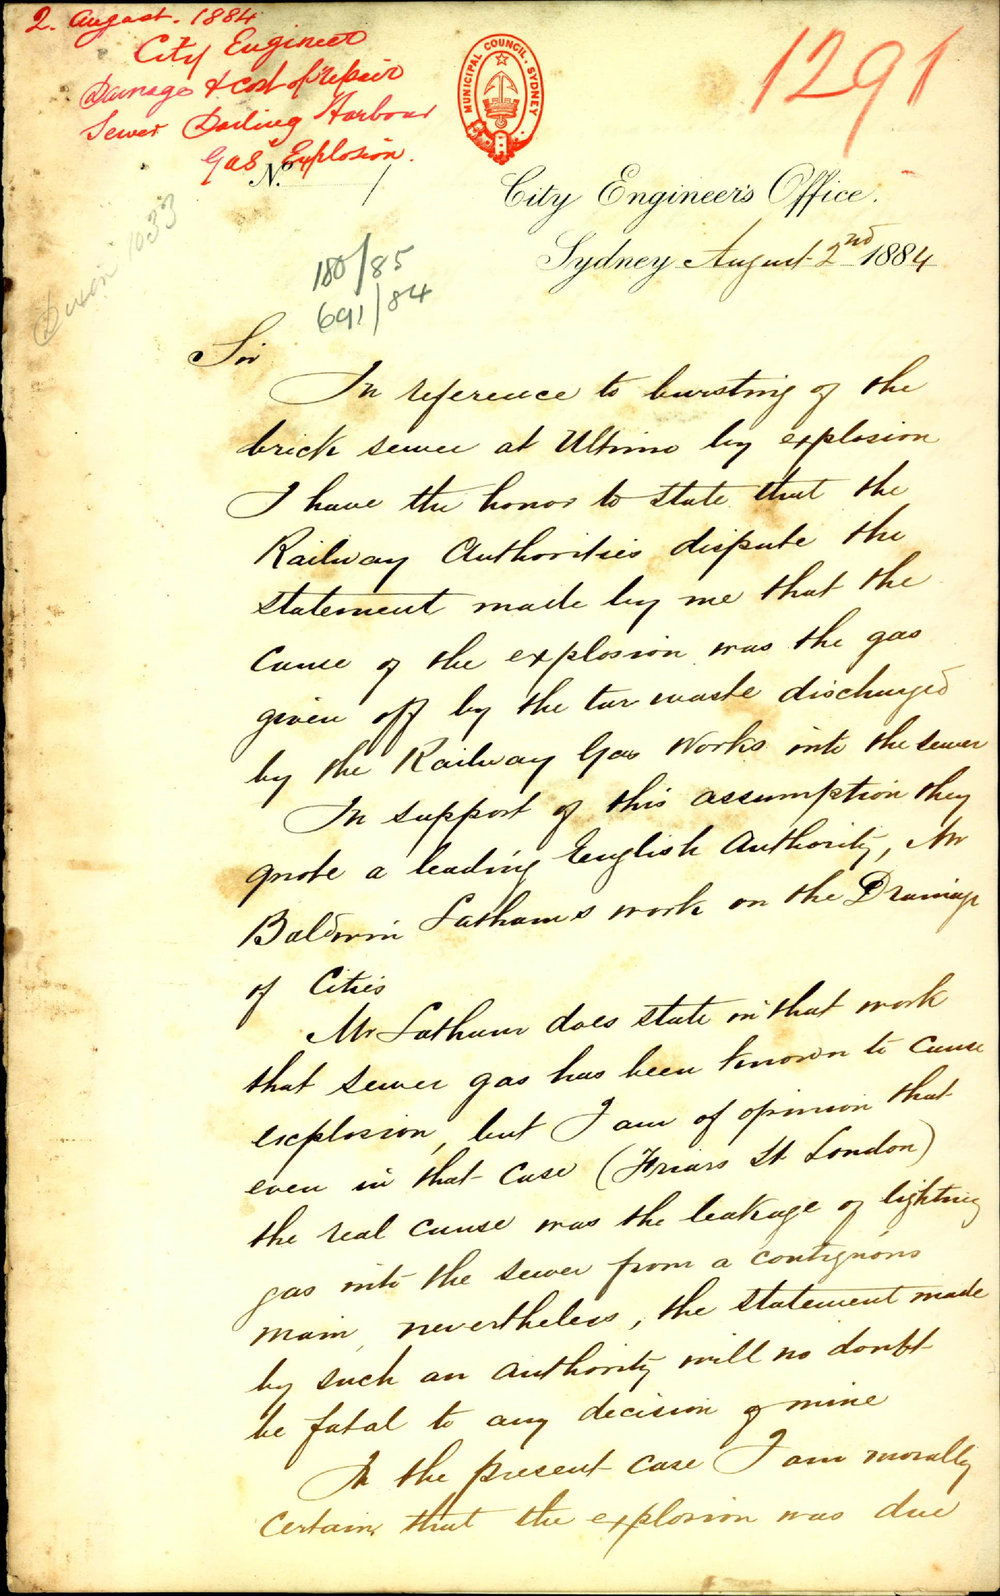 2. August. 1884
City Engineer
Damage & cost of repair
Sewer Darling Harbour
Gas Explosion.
1291
MUNICIPAL COUNCIL. SYDNEY
No.
City Engineer's Office.
Sydney August 2nd 1884
180/85
691/84
1033
Sir
In reference to bursting of the
brick sewer at Ultimo by explosion
I have the honor to state that the
Railway Authorities dispute the
statement made by me that the
cause of the explosion was the gas
given off by the tar waste discharged
by the Railway Gas Works into the sewer
In support of this assumption they
quote a leading English Authority, Mr
Baldwin Latham's work on the Drainage
of Cities
Mr Latham does state in that work
that sewer gas has been known to cause
explosion, but I am of opinion that
even in that case (Friars St London)
the real cause was the leakage of lighting
gas into the sewer from a contiguous
main, nevertheless, the statement made
by such an authority will no doubt
be fatal to any decision of mine
In the present case I am morally
certain that the explosion was due